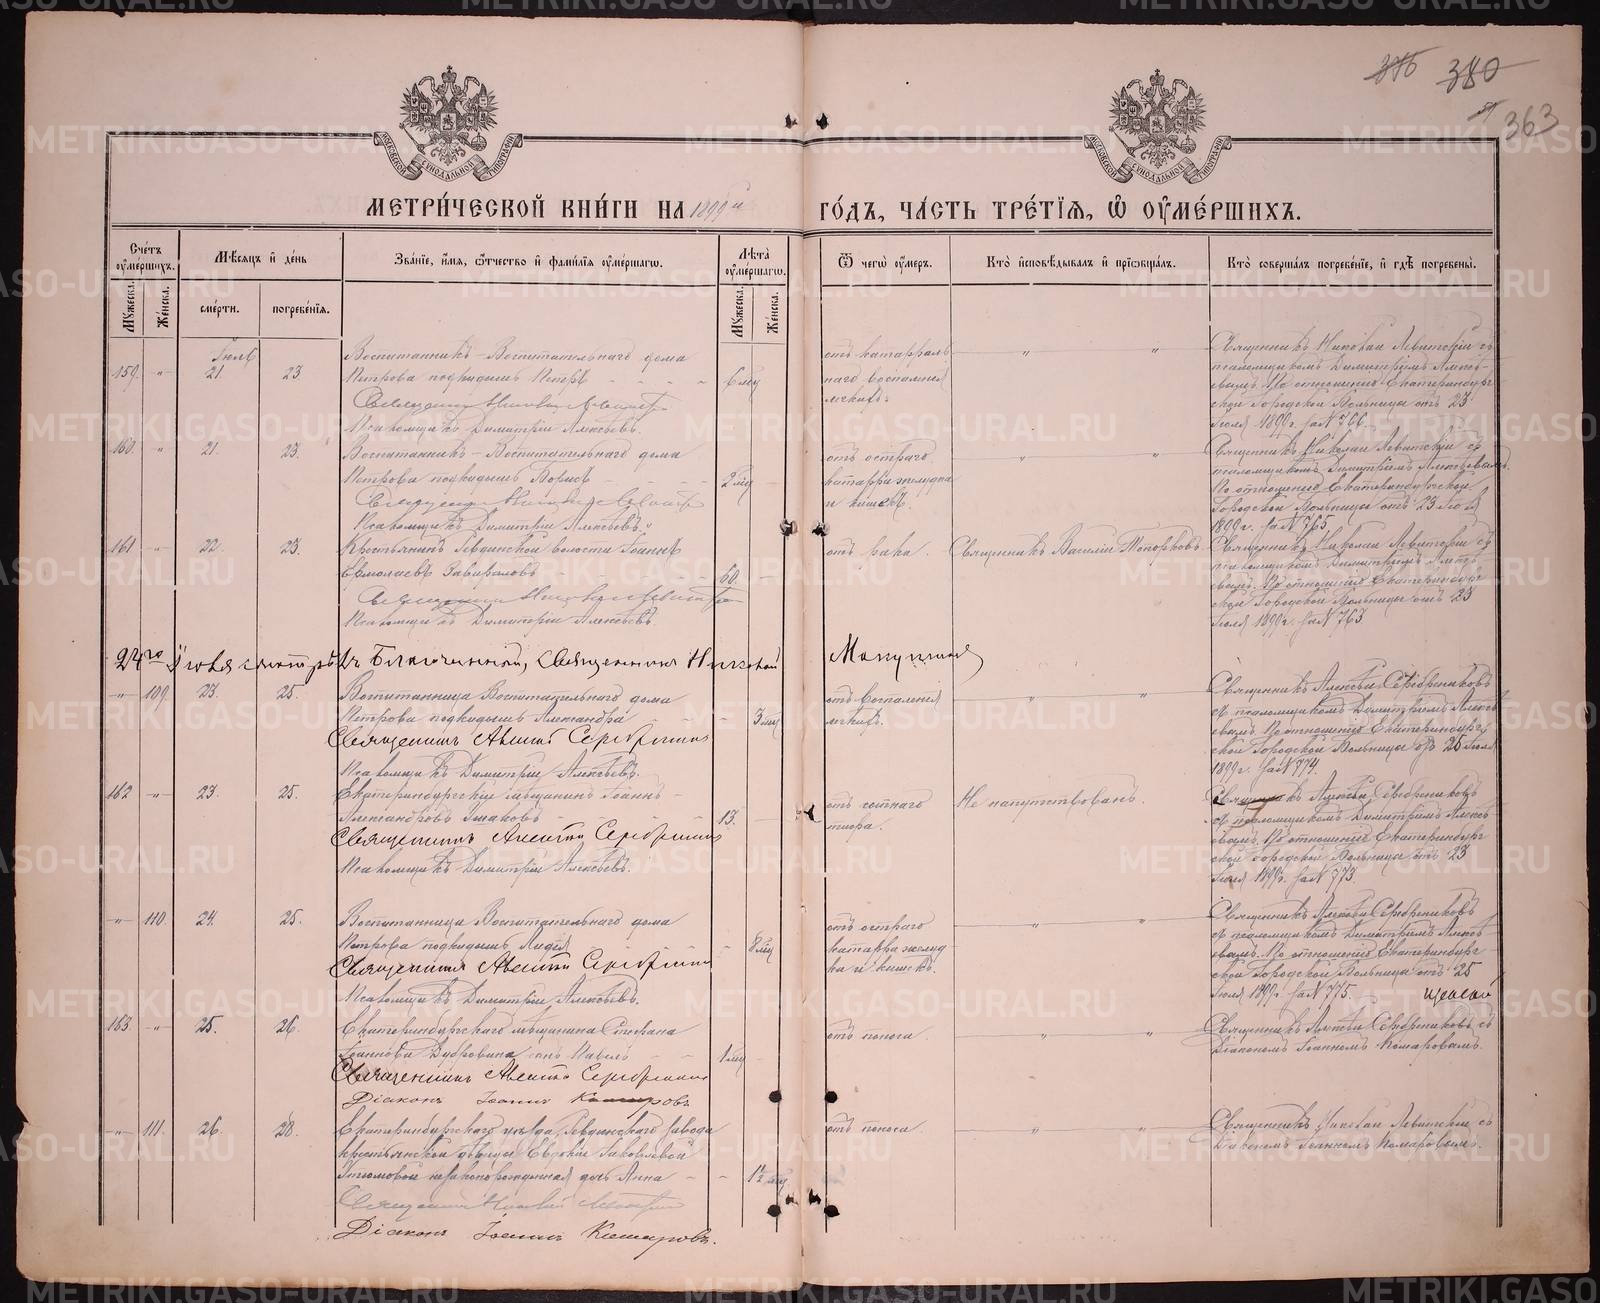 376 380
363
МЕТРИ́ЧЕСКОЙ КНИ́ГИ НА 1899й ГО́ДЪ, ЧА́СТЬ ТРЕ́ТІѦ, Ѽ ОУ҆МЕ́РШИХЪ.
Сче́тъ оу҆ме́ршихъ.
Мѣ́сѧцъ и҆ де́нь
Зва́нїе, и҆́мѧ, ѻ҆́тчество и҆ фами́лїѧ оу҆ме́ршагѡ.
Лѣ́та оу҆ме́ршагѡ.
Ѿ чегѡ̀ оу҆́меръ.
Кто̀ и҆сповѣ́дывалъ и҆ прїѡбща́лъ.
Кто̀ соверша́лъ погребе́нїе, и҆ гдѣ̀ погребены̀.
Мꙋ́жеска. Же́нска.
сме́рти. погребе́нїѧ.
Мꙋ́жеска. Же́нска.
Іюль
159. " 21. 23.
Воспитанникъ Воспитательнаго дома
Петрова подкидышъ Петръ 6 мц
Псаломщикъ Димитрій Алексѣевъ.
отъ катарраль
наго воспаленія
легкихъ.
Священникъ Николай Левитскій съ
псаломщикомъ Димитріемъ Алексѣ-
евымъ. По отношенію Екатеринбург
ской Городской Больницы отъ 23
Іюля 1899г. за N 766.
160. " 21. 23.
Воспитанникъ Воспитательнаго дома
Петрова подкидышъ Борисъ 2 мц
Псаломщикъ Димитрій Алексѣевъ.
отъ остраго
катарра желудка
и кишекъ.
Священникъ Николай Левитскій съ
псаломщикомъ Димитріемъ Алексѣевымъ.
По отношенію Екатеринбургской
Городской Больницы отъ 23 Іюля
1899г. за N 765.
161 " 22. 23.
Крестьянинъ Ревдинской волости Іоаннъ
Ермолаевъ 60.
Псаломщикъ Димитрій Алексѣевъ.
отъ рака.
Священникъ Василій Топорковъ.
Священникъ Николай Левитскій съ
псаломщикомъ Димитріемъ Алексѣ-
евымъ. По отношенію Екатеринбург
ской Городской Больницы отъ 23
Іюля 1899г. за N 763
24го Іюля смотрѣлъ Благочинный, Священникъ Николай
" 109. 23. 25.
Воспитанница Воспитательнаго дома
Петрова подкидышъ Александра 3 мц
Священникъ Алексѣй Серебренниковъ
Псаломщикъ Димитрій Алексѣевъ.
отъ воспаленія
легкихъ.
Священникъ Алексѣй Серебренниковъ
съ псаломщикомъ Димитріемъ Алексѣ
евымъ. По отношенію Екатеринбург
ской Городской Больницы отъ 25 Іюля
1899г. за N 774.
162 " 23. 25.
Екатеринбургскій мѣщанинъ Іоаннъ
Александровъ 13.
Священникъ Алексѣй Серебренниковъ
Псаломщикъ Димитрій Алексѣевъ.
отъ сыпнаго
тифа.
Не напутствованъ.
Священникъ Алексѣй Серебренниковъ
съ псаломщикомъ Димитріемъ Алексѣ
евымъ. По отношенію Екатеринбург
ской Городской Больницы отъ 23
Іюля 1899г. за N 773.
" 110. 24. 25.
Воспитанница Воспитательнаго дома
Петрова подкидышъ Лидія 8 мц
Священникъ Алексѣй Серебренниковъ
Псаломщикъ Димитрій Алексѣевъ.
отъ остраго
катарра желуд
ка и кишекъ.
Священникъ Алексѣй Серебренниковъ
съ псаломщикомъ Димитріемъ Алексѣ
евымъ. По отношенію Екатеринбург
ской Городской Больницы отъ 25
Іюля 1899г. за N 775.
163 " 25. 26.
Екатеринбургскаго мѣщанина Стефана
Іоаннова Дубровина сынъ Павелъ 1 мц
Священникъ Алексѣй Серебренниковъ
Діаконъ Іоаннъ Комаровъ
отъ поноса.
Священникъ Алексѣй Серебренниковъ съ
Діакономъ Іоанномъ Комаровымъ.
" 111. 26. 28.
Екатеринбургскаго уѣзда Ревдинскаго завода
крестьянской дѣвицы Евдокіи Яковлевой
незаконнорожденная дочь Анна 1½ мц
Діаконъ Іоаннъ Комаровъ.
отъ поноса.
Священникъ Николай Левитскій съ
Діакономъ Іоанномъ Комаровымъ.
METRIKI.GASO-URAL.RU